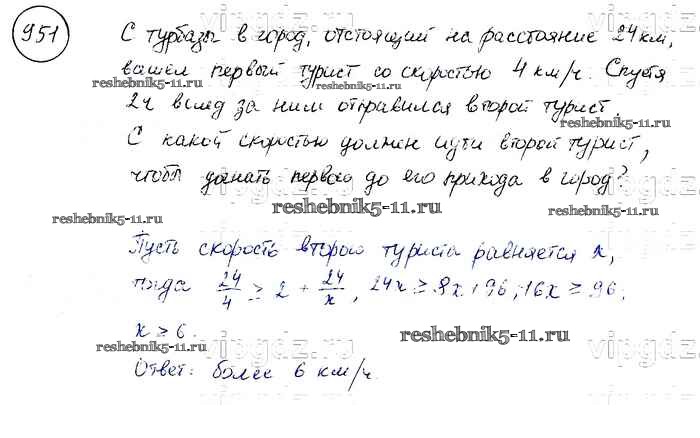 951
С турбазы в город, отстоящий на расстояние 24 км,
вышел первый турист со скоростью 4 км/ч. Спустя
2ч вслед за ним отправился второй турист
С какой скоростью должен идти второй турист,
чтобы догнать первого до его прихода в город?
Пусть скорость второго туриста равняется x,
тогда 24/4 ≥ 2 + 24/x, 24x ≥ 8x + 96; 16x ≥ 96;
x ≥ 6.
Ответ: более 6 км/ч.
vipgdz.com
reshebnik5-11.ru
reshebnik5-11.ru
reshebnik5-11.ru
reshebnik5-11.ru
reshebnik5-11.ru
reshebnik5-11.ru
reshebnik5-11.ru
reshebnik5-11.ru
vipgdz.com
vipgdz.com
vipgdz.com